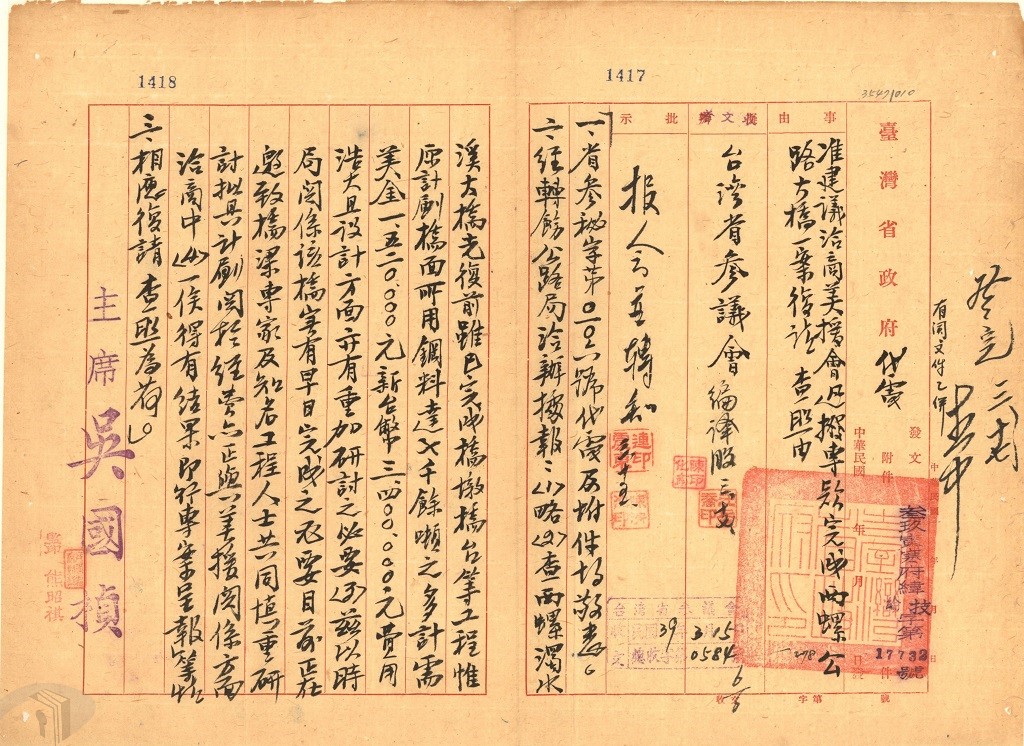 1417
臺灣省政府代電
事由
准建議洽商美援會迅撥專款完成西螺公
路大橋一案復請查照由
擬辦
批示
收文
台灣省參議會
中華民國 年 月 日發
發文
附件
字第17732號
報人會並轉知
台灣省參議會
39
3 15
0584
一、省參秘字第〇二〇六號代電及附件均敬悉。
二、經轉飭公路局洽辦據報:(1)略(2)查西螺濁水
1418
溪大橋光復前雖已完成橋墩橋台等工程惟
原計劃橋面所用鋼料達七千餘噸之多計需
美金一、五二〇、〇〇〇元新台幣三、四〇〇、〇〇〇元費用
浩大且設計方面亦有重加研討之必要(3)茲以時
局關係該橋實有早日完成之必要目前正在
邀致橋梁專家及知名工程人士共同慎重研
討擬具計劃關於經費亦正與美援關係方面
洽商中(4)一俟得有結果即行專案呈報等情
三、相應復請 查照為荷。
主席吳國楨
熊昭祺